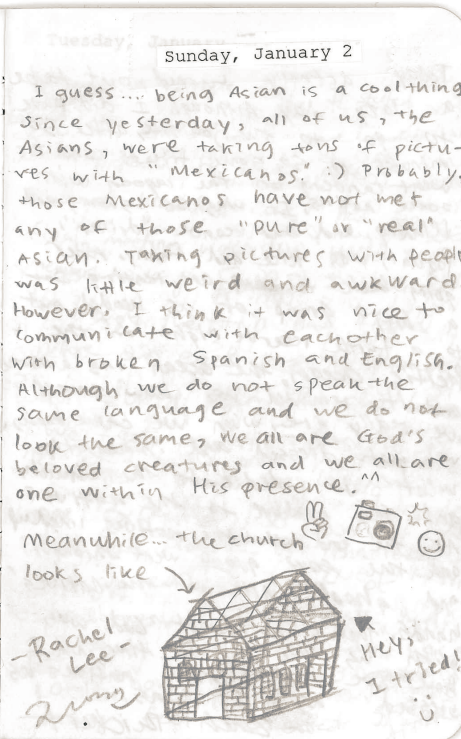 Sunday, January 2
I guess.... being Asian is a cool thing
since yesterday, all of us, the
Asians, were taking tons of pictu-
res with "Mexicanos." :) Probably,
those Mexicanos have not met
any of those "pure" or "real"
Asian. Taking pictures with people
was little weird and awkward
However, I think it was nice to
communicate with eachother
with broken Spanish and English.
Although we do not speak the
same language and we do not
look the same, we all are God's
beloved creatures and we all are
one within His presence.^^
Meanwhile... the church
looks like
Hey,
I tried!
-Rachel
Lee-